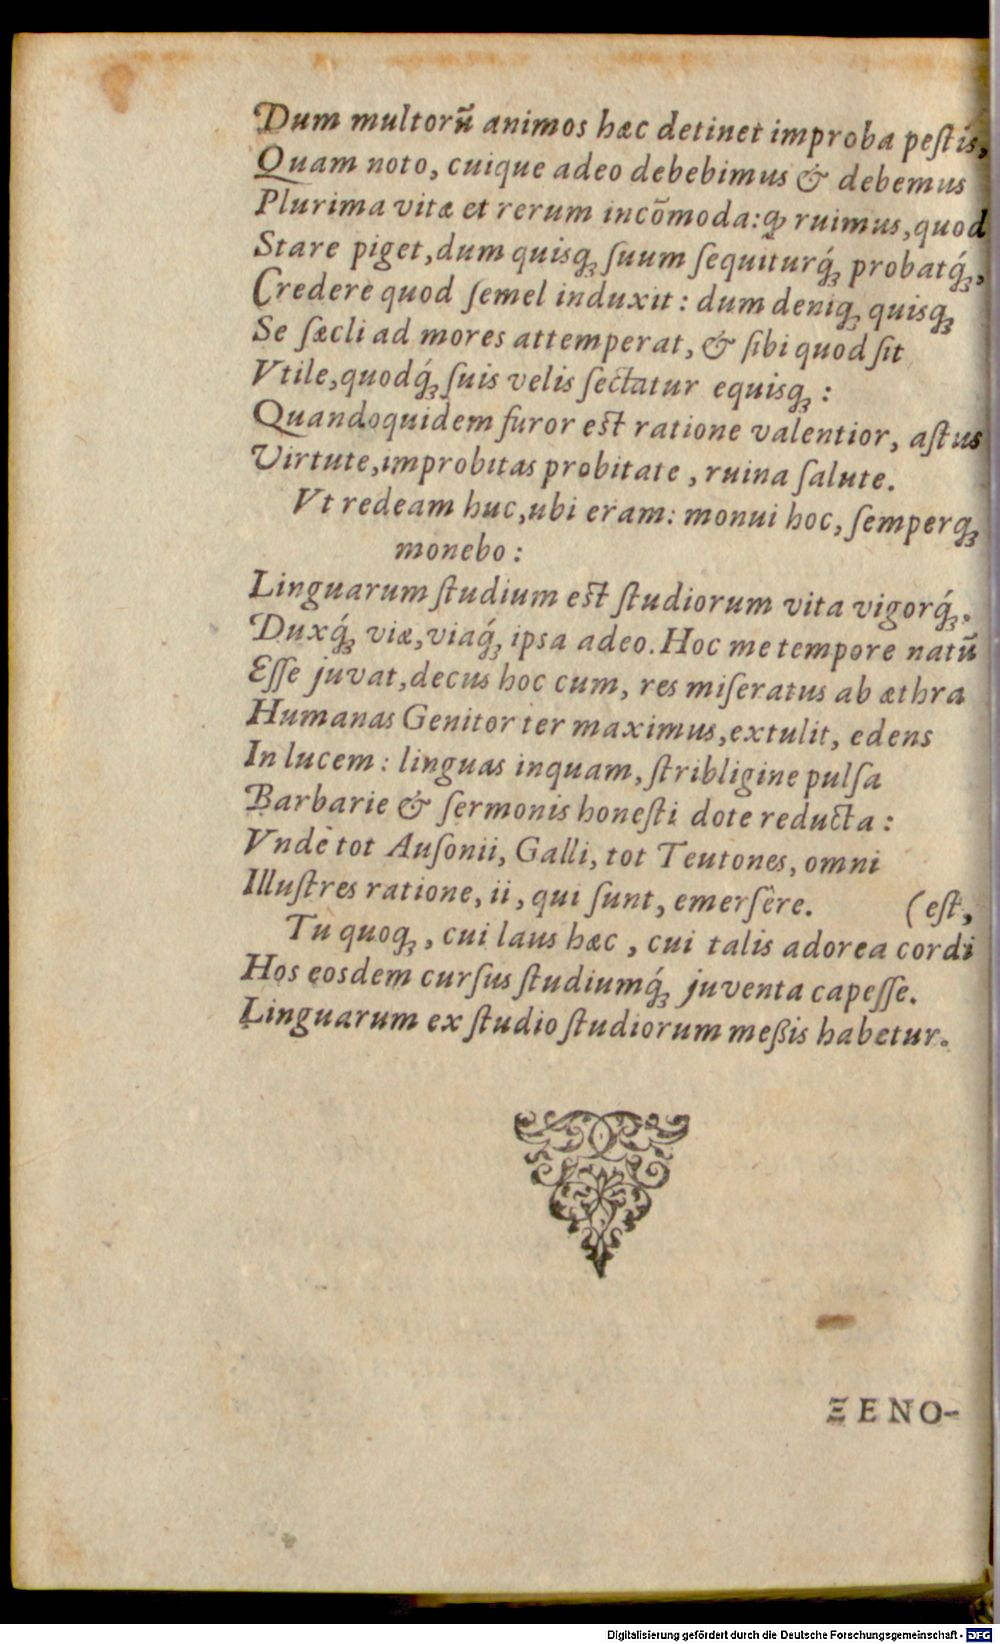 Dum multorũ animos hæc detinet improba peſtis,
Quam noto, cuique adeo debebimus & debemus
Plurima vitæ et rerum incõmoda: ꝙ ruimus, quod
Stare piget, dum quisq́ꝫ ſuum ſequiturq́ꝫ probatq́ꝫ,
Credere quod ſemel induxit: dum deniqꝫ quisqꝫ
Se ſæcli ad mores attemperat, & ſibi quod ſit
Vtile, quodq́ꝫ ſuis velis ſectatur equisqꝫ:
Quandoquidem furor est ratione valentior, aſtus
Virtute, improbitas probitate, ruina ſalute.
Vt redeam huc, ubi eram: monui hoc, ſemperqꝫ
monebo:
Linguarum ſtudium est ſtudiorum vita vigorq́ꝫ,
Duxq́ꝫ viæ, viaq́ꝫ ipsa adeo. Hoc me tempore natũ
Eſſe juvat, decus hoc cum, res miſeratus ab æthra
Humanas Genitor ter maximus, extulit, edens
In lucem: linguas inquam, ſtribligine pulſa
Barbarie & ſermonis honeſti dote reducta:
Vnde tot Auſonii, Galli, tot Teutones, omni
Illuſtres ratione, ii, qui ſunt, emerſêre. (eſt,
Tu quoqꝫ, cui laus hæc, cui talis adorea cordi
Hos eosdem curſus ſtudiumq́ꝫ juventa capeſſe.
Linguarum ex ſtudio ſtudiorum meßis habetur.
ΞENO-
Digitalisierung gefördert durch die Deutsche Forschungsgemeinschaft - DFG